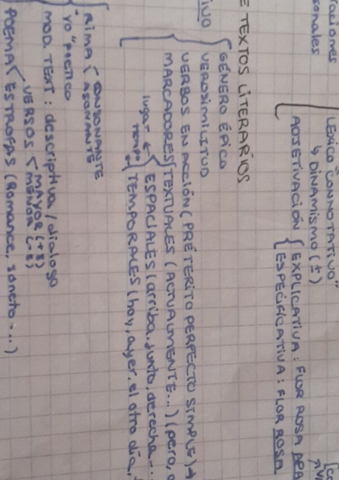 raciones
sonales
LÉXICO "CONNOTATIVO"
↳ DINAMISMO (±)
ADJETIVACIÓN { EXPLICATIVA: FLOR ROSA
ESPECIFICATIVA: FLOR ROSA
E TEXTOS LITERARIOS
IVO
GÉNERO ÉPICO
VEROSIMILITUD
VERBOS EN ACCIÓN (PRETÉRITO PERFECTO SIMPLE)
MARCADORES { TEXTUALES (ACTUALMENTE...) (pero,
lugar ← ESPACIALES (arriba, junto, derecha...
tiempo ← TEMPORALES (hoy, ayer, el otro día,
RIMA < CONSONANTE
ASONANTE
"YO" POÉTICO
MOD. TEXT: descriptiva / dialogo
POEMA < VERSOS < MAYOR (+8)
MENOR (-8)
ESTROFAS (Romance, soneto...)